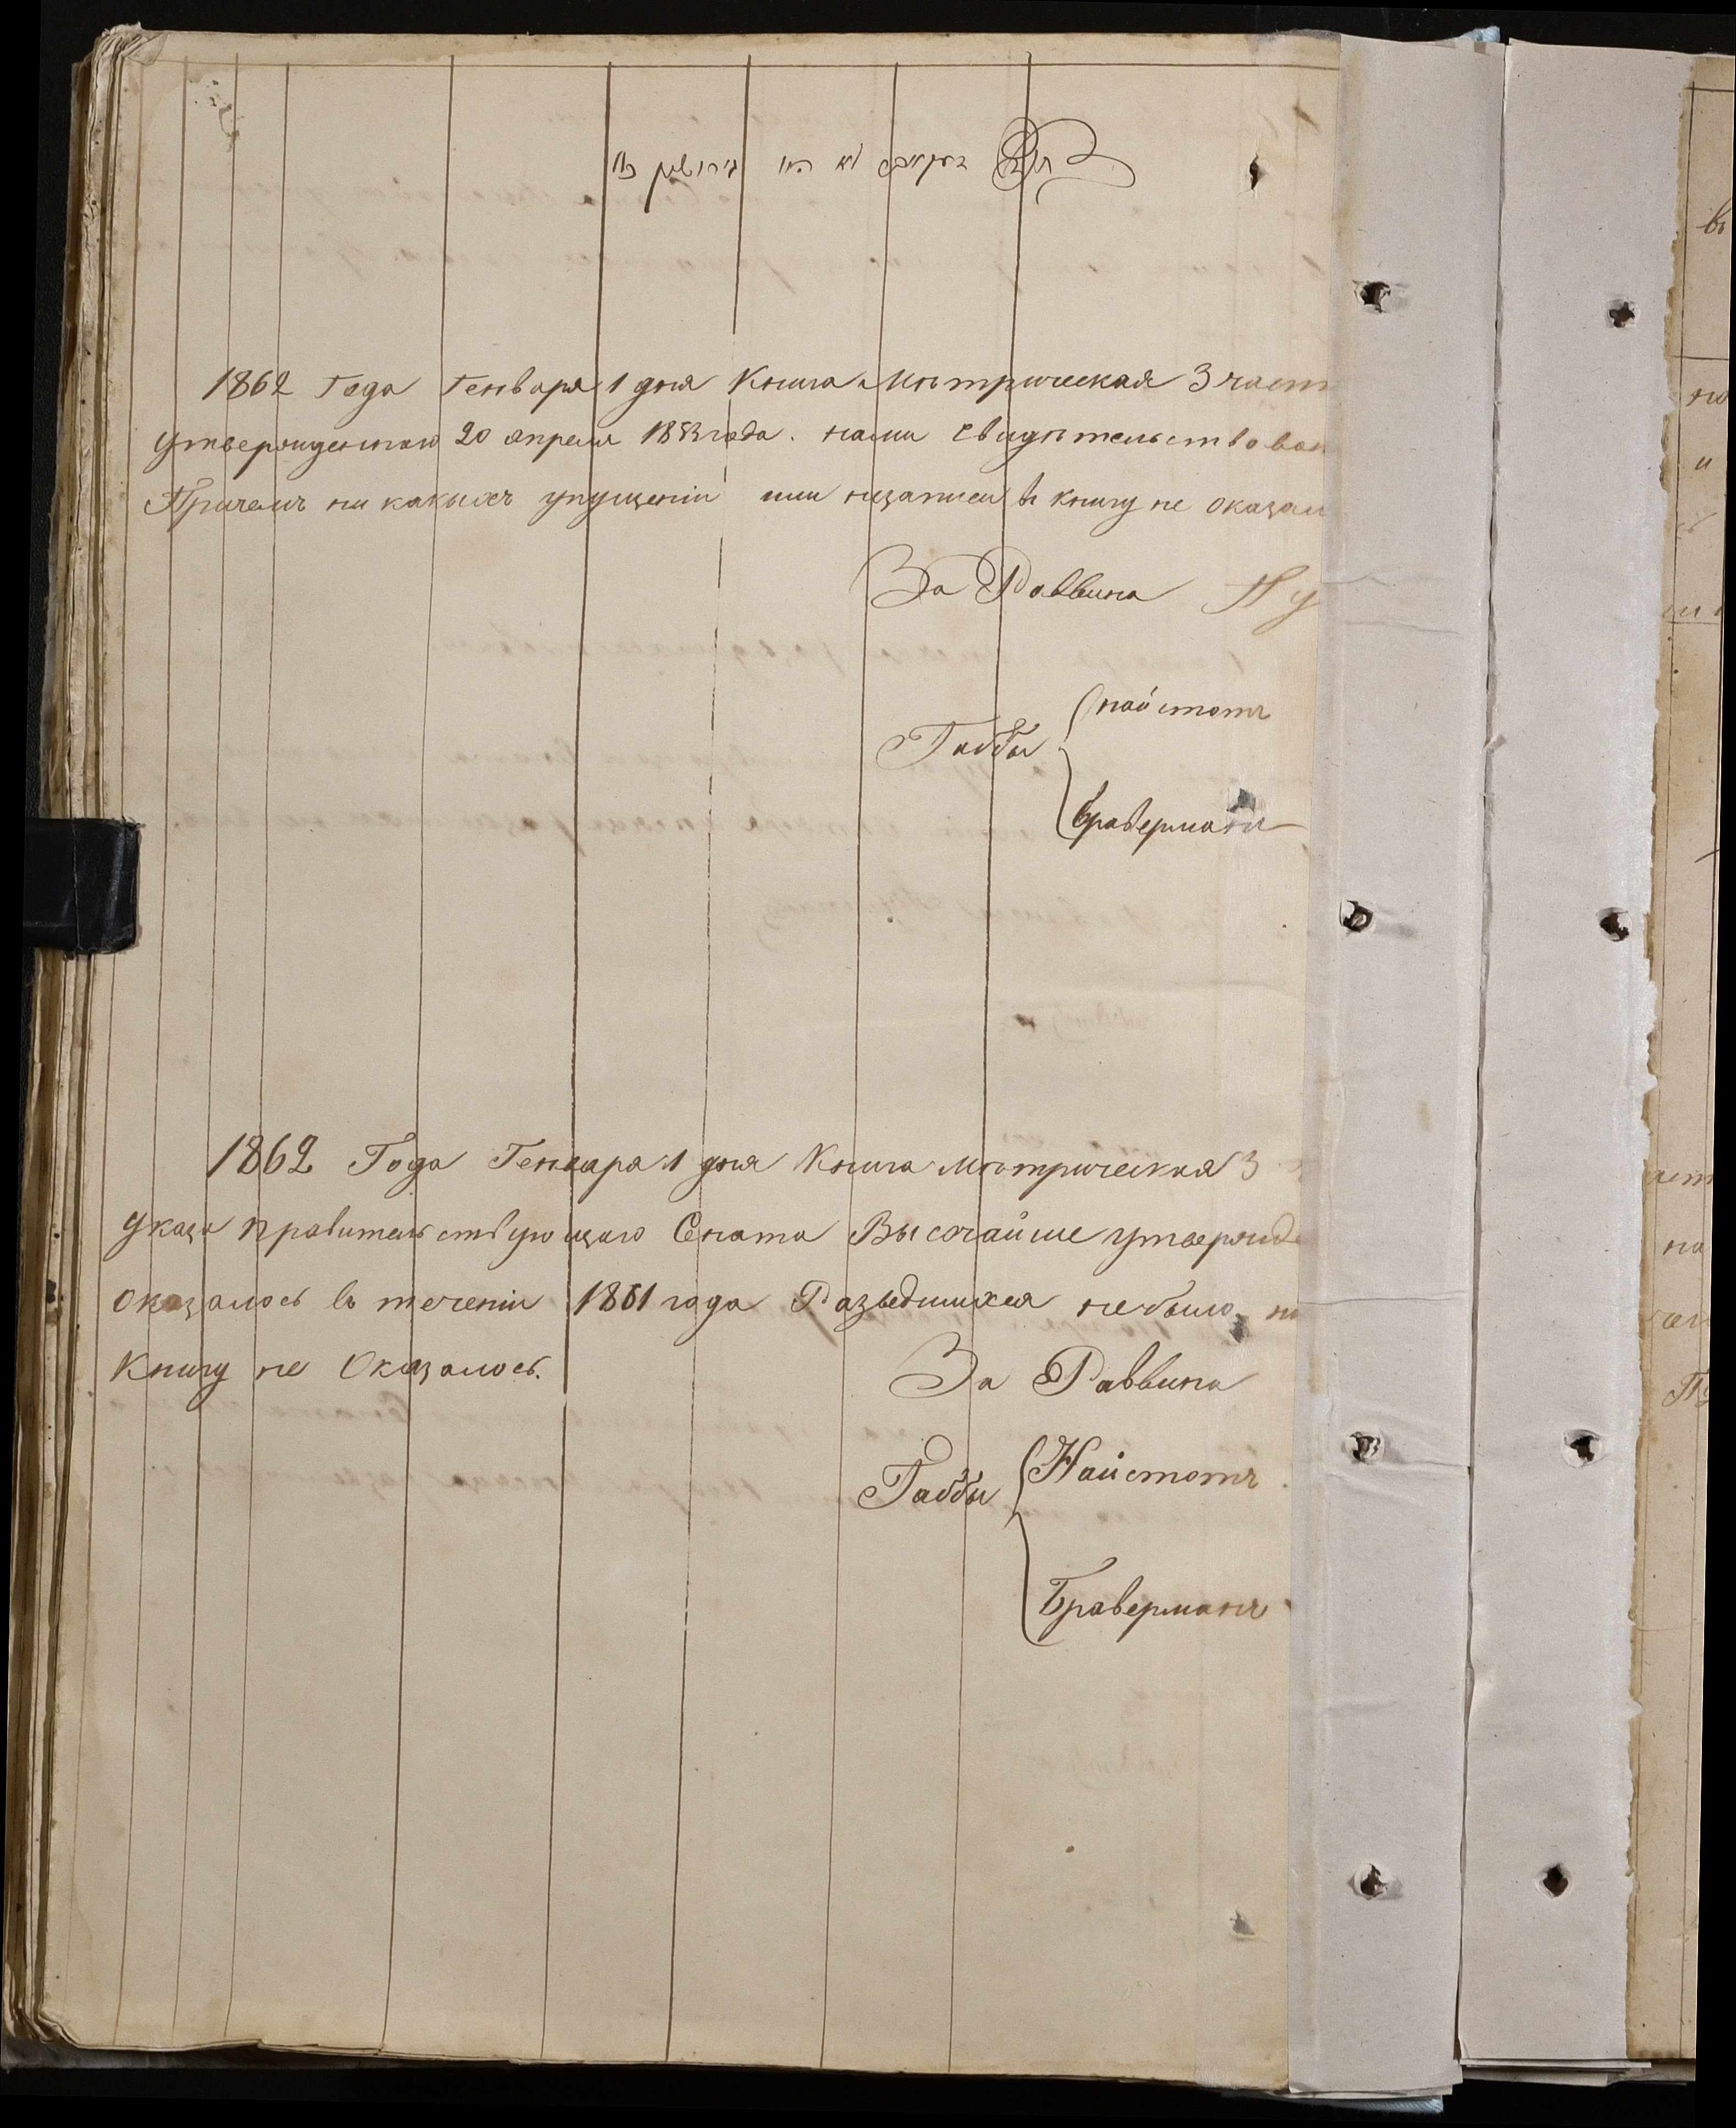 1862 Года Генваря 1 дня Книга Мѣтрическая 3 част
утвержденнаго 20 апреля 1853 года. нами свидѣтельствован
Причемъ ни какихъ упущеніи или незаписи въ книгу не оказал
За Раввина Пу
Габбы
Найстотъ
Браверманъ
1862 Года Генваря 1 дня Книга мѣтрическая 3
указа правительствующаго Сената Высочайше утвержде
оказалось въ теченіи 1861 года Разведшихся небыло
Книгу не Оказалось.
За Раввина
Габбы
Найстотъ
Браверманъ